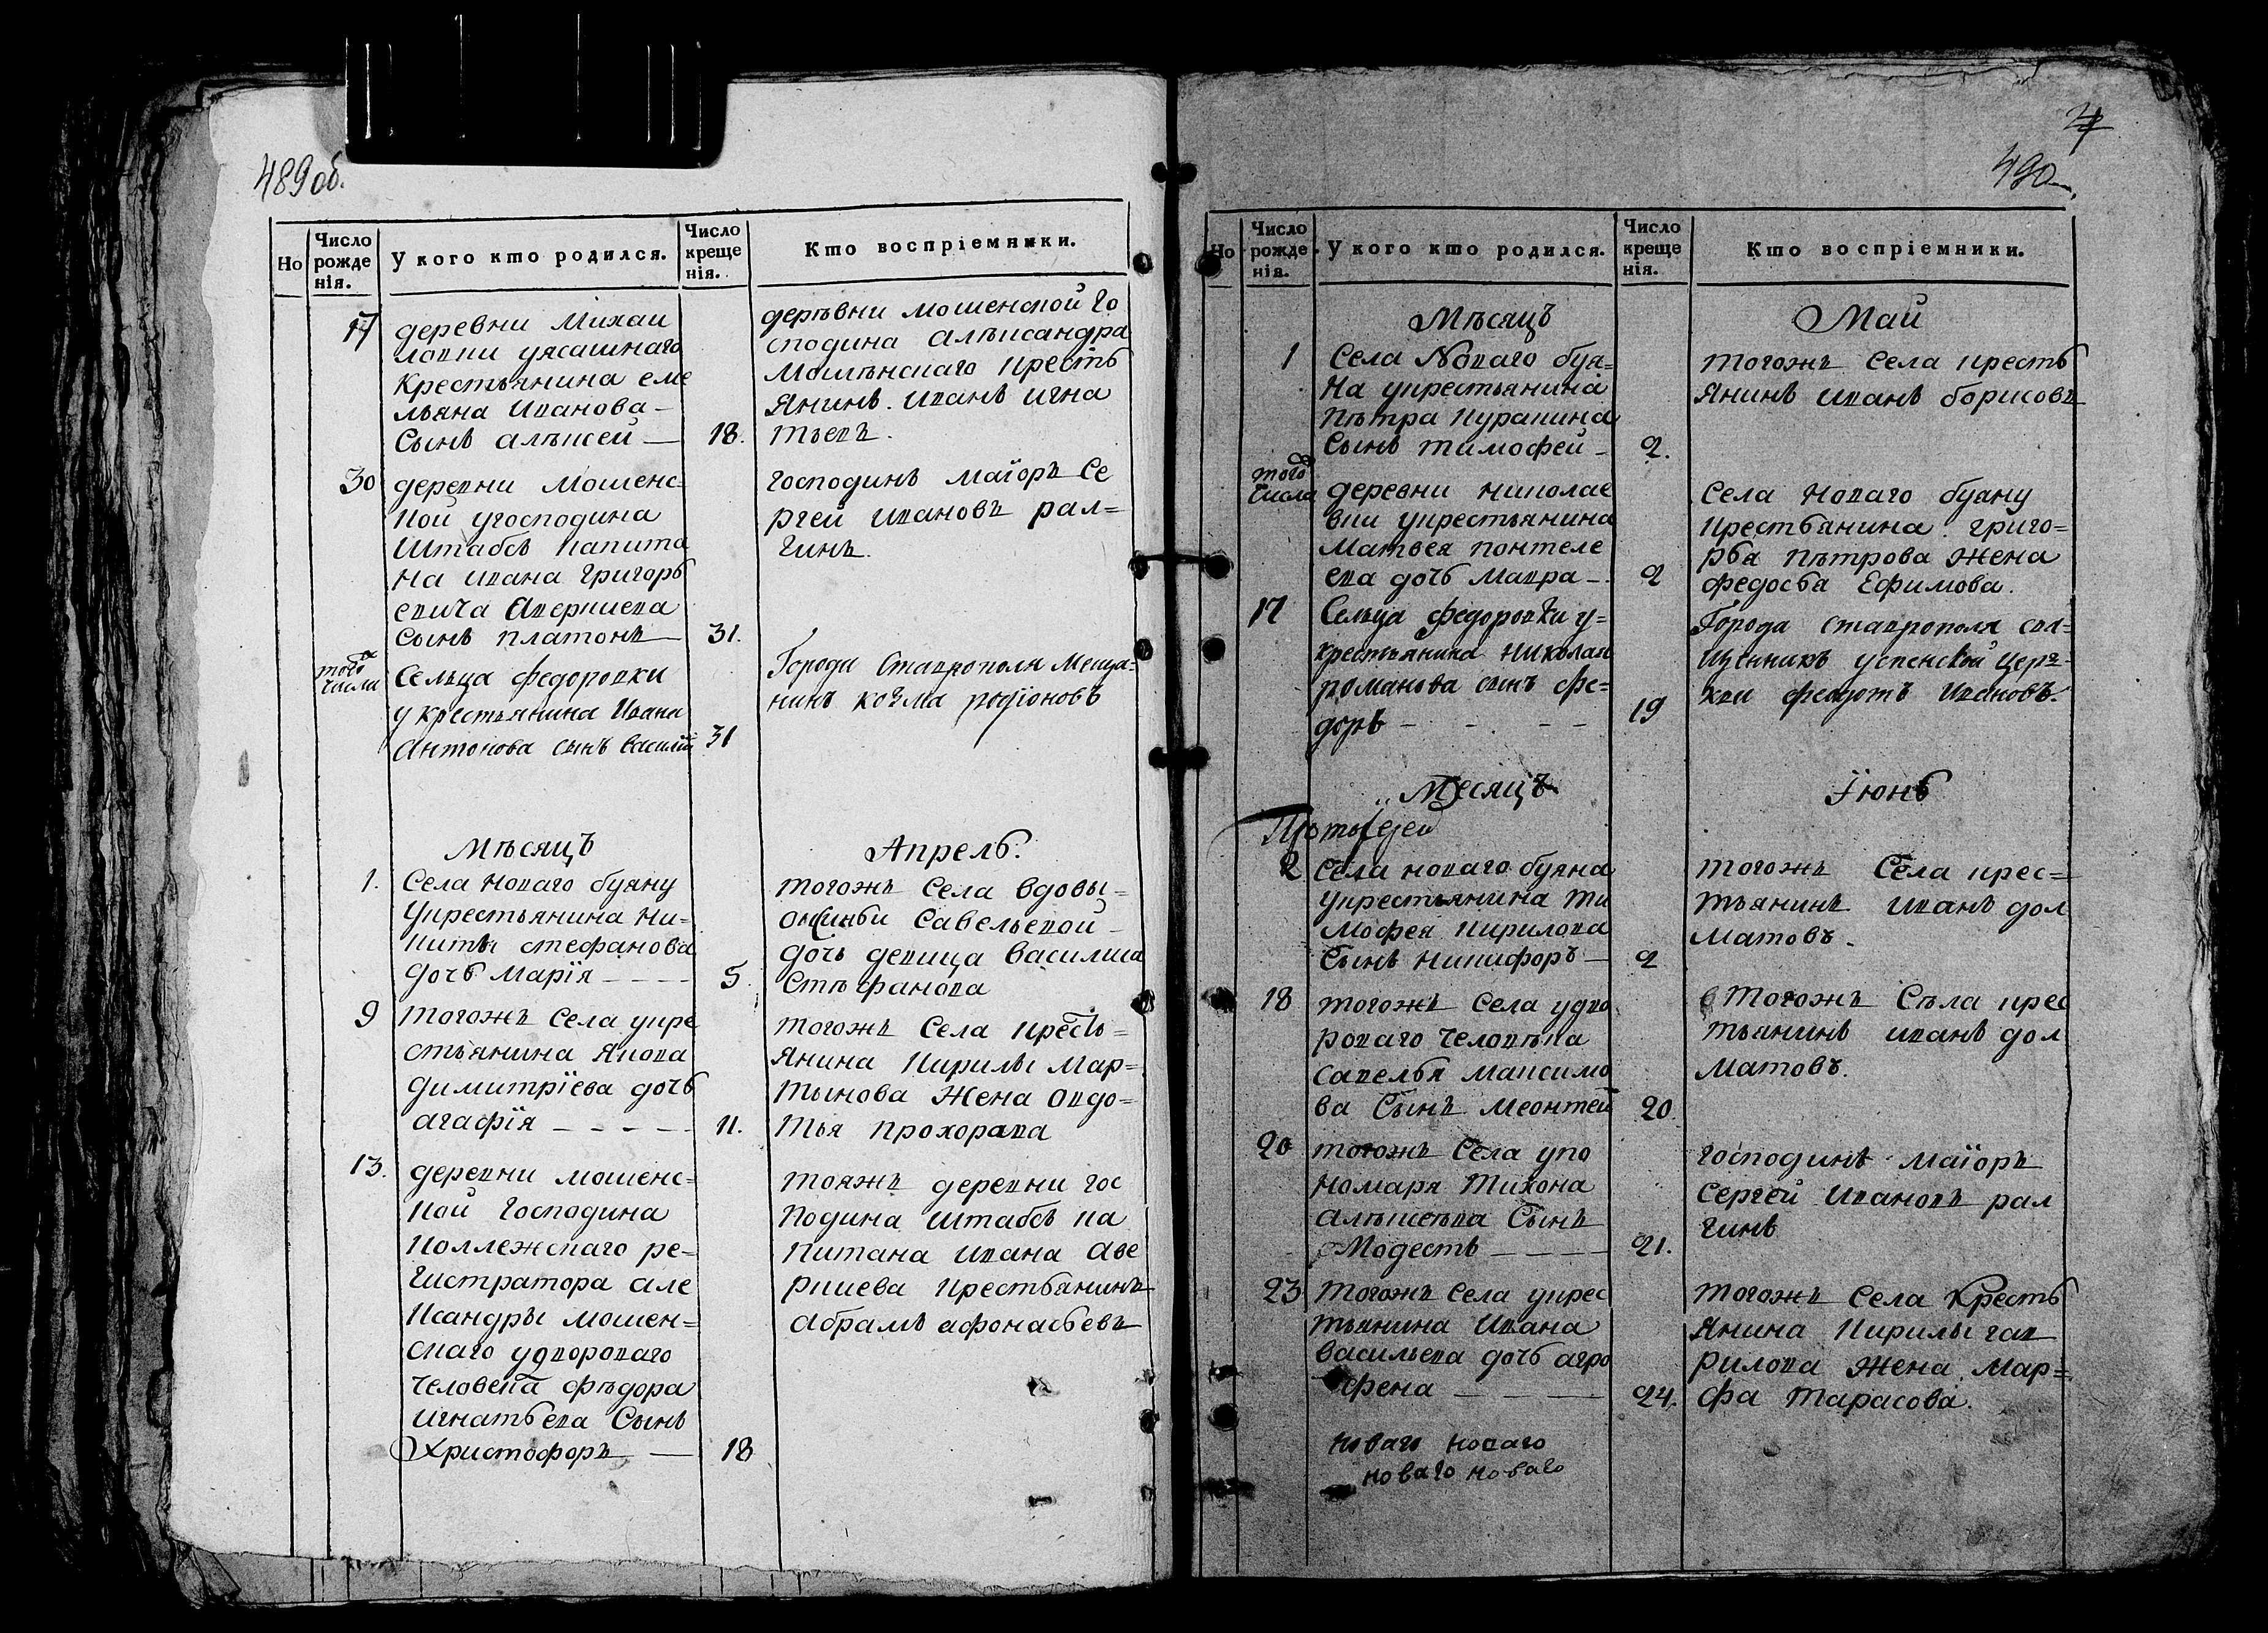 489 об.
Но
Число рожде нія.
У кого кто родился.
Число креще нія.
Кто воспріемники.
17
деревни Михаи
ловки уясашнаго
Крестьянина еме
льяна Иванова —
Сынъ алѣксей —
18.
дерѣвни мошенской го
сподина алѣксандра
Мошѣнскаго кресть
янинъ. Иванъ игна
тьевъ.
30
деревни Мошенс=
кой угосподина
Штабсъ капита
на ивана григорь
евича Аверкиева
сынъ платонъ
31.
господинъ маіоръ Се
ргей ивановъ рал=
гинъ.
того числа
Сельца федоровки
у крестьянина Ивана
Антонова сынъ василій
31
Города Ставрополя Меща=
нинъ козма родіоновъ
Мѣсяцъ
Апрель.
1.
Села новаго буяну
Укрестьянина ни=
киты стефанова
дочь марія - - - -
5.
тогожъ Села вдовы=
Савельевой
дочь девица василиса
Стѣфанова
9
тогожъ Села укре
стьянина якова
димитріева дочь
агафія — — — —
11.
тогожъ Села кресть=
янина Кирилы мар=
тынова жена овдо=
тья прохорава
13.
деревни мошенс=
кой господина
коллежскаго ре=
гистратора але
ксандры мошен=
скаго удвороваго
человека фѣдора
игнатьева Сынъ
Христофоръ —
18
тояжъ деревни гос
подина штабсъ ка
питана ивана аве
ркиева крестьянинъ
абрамъ афонасьевъ
490
Но
Число рожде нія.
У кого кто родился.
Число креще нія.
Кто воспріемники.
Мѣсяцъ
Май
1
Села Новаго буя=
на укрестьянина
пѣтра куракина
Сынъ тимофей —
2.
тогожъ села кресть
янинъ иванъ борисовъ
того числа
деревни николае
вки укрестьянина
матвея понтеле
ева дочь мавра —
2
Села новаго буяну
крестьянина григо=
рья пѣтрова жена
федосья Ефимова.
17
Сельца федоровки у=
крестьянина николая
романова сынъ фе=
доръ — - - -
19
Города ставрополя свя=
щенникъ успенской церь
кви федотъ Ивановъ.
Месяцъ
Іюнь
2
Села новаго буяна
укрестьянина ти
мофея кирилова
сынъ никифоръ —
2
тогожъ Села крес=
тьянинъ иванъ дол
матовъ.
18
тогожъ Села удво
роваго человѣка
савелья максимо
ва Сынъ Меонтей
20.
тогожъ Сѣла крес
тьянинъ иванъ дол
матовъ.
20
тогожъ Села упо
номаря Тихона
алѣксѣева Сынъ
Модестъ — — —
21.
господинъ маіоръ
Сергей ивановъ рал
гинъ
23
тогожъ Села укрес
тьянина Ивана
васильева дочь агро
фена — — —
24.
тогожъ Села Кресть
янина кирилы гав
рилова жена. мар=
фа Тарасова.
новаго новаго
новаго новаго